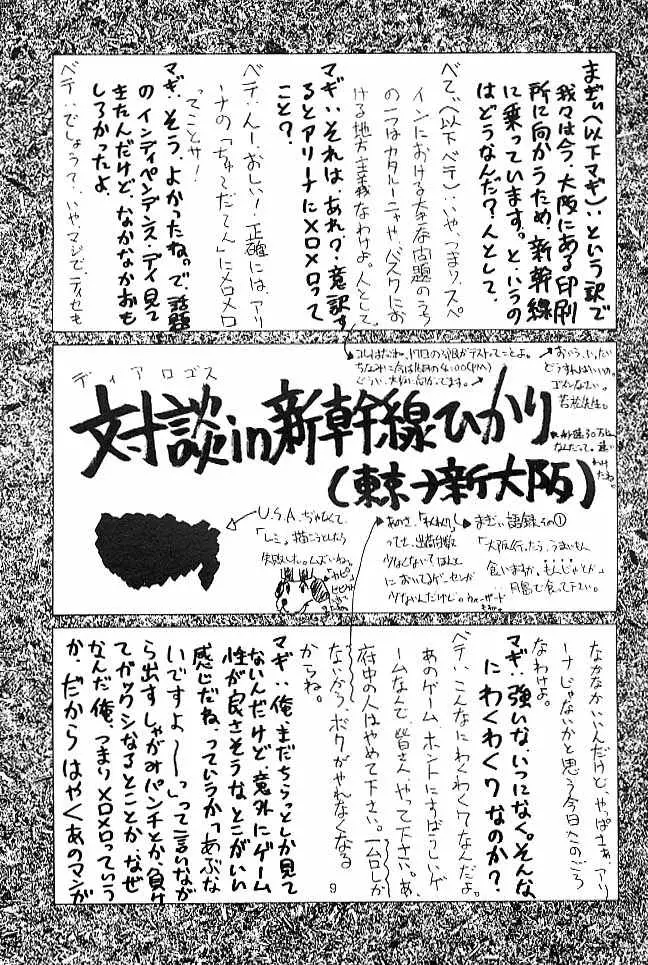 まぎぃ(以下マギ):という訳で
我々は今、大阪にある印刷
所に向かうため、新幹線
に乗っています。と、いうの
はどうなんだ?人として。
べてぃ(以下ベテ):いや、つまり、スペ
インにおける大きな問題のうち
の一つはカタルーニャや、バスクにお
ける地方主義なわけよ。人として
マギ:それは、あれ?意訳す
るとアリーナにメロメロって
こと?
ベテ:んー、おしい!正確には、アリ
ーナの「ちゅてだてん」にメロメロ
ってことサ!
マギ:そう、よかったね。で、話題
のインディペンデンス・デイ見て
きたんだけど、なかなかおも
しろかったよ。
ベテ:でしょうて、いやマジで、ティセも
ディアロゴス
対談in新幹線ひかり
(東京→新大阪)
U.S.A.ぢゃなくて、
「レミ」描こうとしたら
失敗した。ムズいねっ
まぎぃ語録その①
「大阪行ったら、うまいもん
食いますか、もんじゃとか」
月島で食って下さい。
なかなかいいんだけど、やっぱさぁ、アリ
ーナじゃないかと思う今日このごろ
なわけよ。
マギ:強いな、いつになく。そんな
にわくわく7なのか?
ベテ:こんなにわくわく7なんだよ。
あのゲーム、ホントにすばらしいゲ
ームなんで、皆さん、やって下さい。あ、
府中の人はやめて下さい。一台しか
ないから、ボクがやれなくなる
からね。
マギ:俺、まだちらっとしか見て
ないんだけど、意外にゲーム
性が良さそうな、とこがいい
感じだね、っていうか「あぶな
いですよ〜〜」って言いなが
ら出すしゃがみパンチとか、負け
てガックシなるとことか、なぜ
なんだ俺、つまりメロメロっていう
か、だからはやくあのマンガ
9